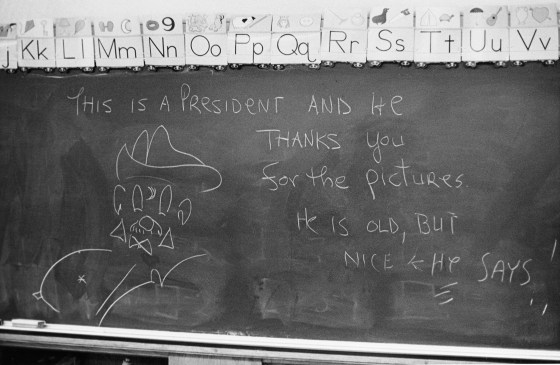 J Kk Ll Mm Nn Oo Pp Qq Rr Ss Tt Uu Vv
THIS IS A PRESIDENT AND HE
THANKS you
for the pictures.
HE IS OLD, BUT
NICE ← HE SAYS